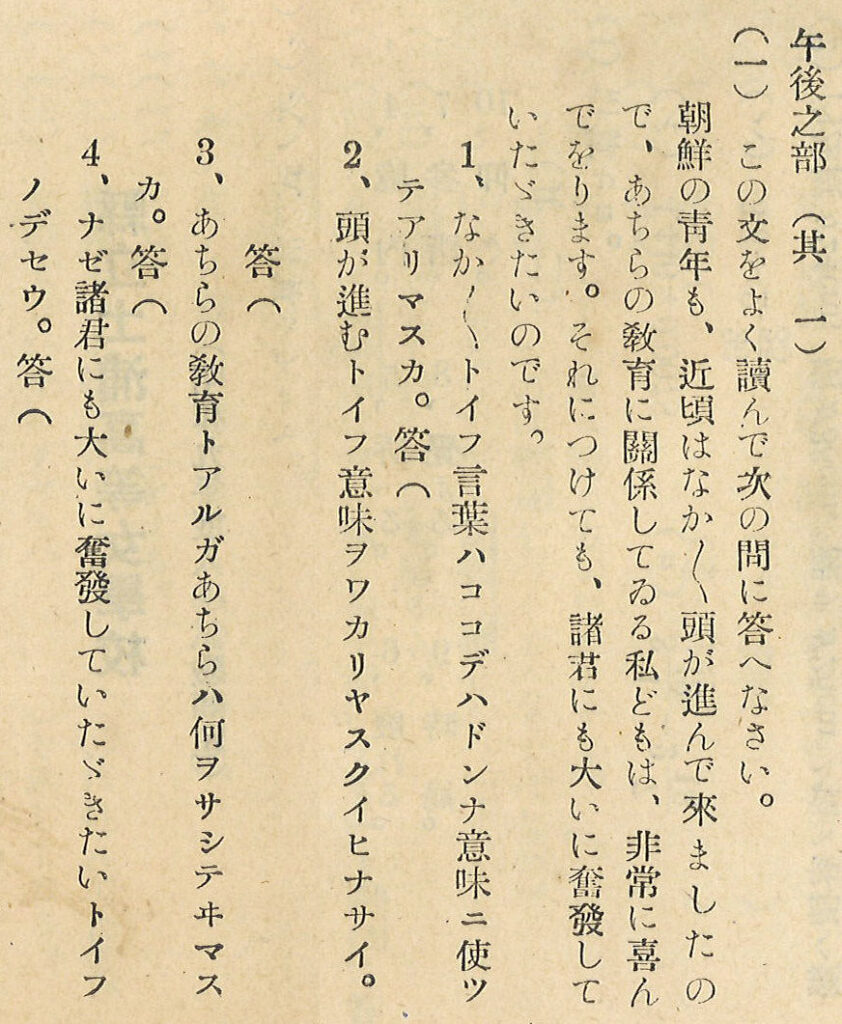 午後之部 （其 一）
（一） この文をよく讀んで次の問に答へなさい。
朝鮮の靑年も、近頃はなか〳〵頭が進んで來ましたの
で、あちらの敎育に關係してゐる私どもは、非常に喜ん
でをります。それにつけても、諸君にも大いに奮發して
いたゞきたいのです。
1、なか〳〵トイフ言葉ハココデハドンナ意味ニ使ツ
テアリマスカ。答（
2、頭が進むトイフ意味ヲワカリヤスクイヒナサイ。
答（
3、あちらの敎育トアルガあちらハ何ヲサシテヰマス
カ。答（
4、ナゼ諸君にも大いに奮發していたゞきたいトイフ
ノデセウ。答（